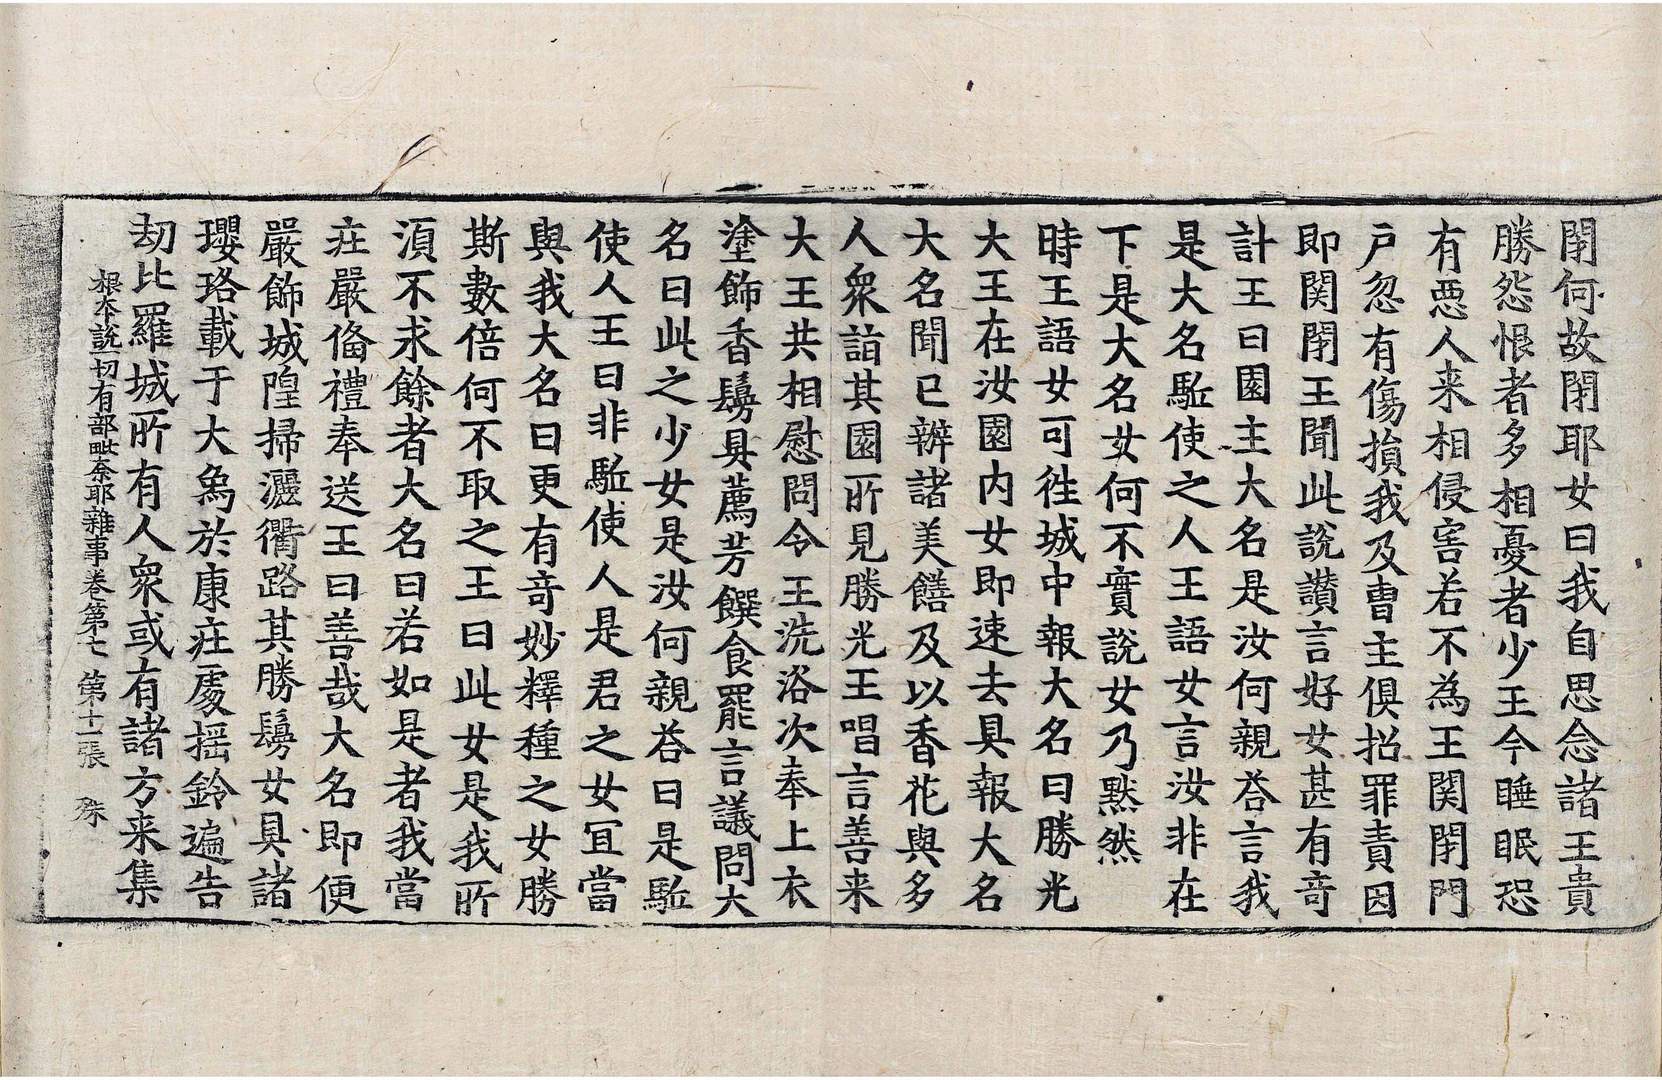 閇何故閇耶女曰我自思念諸王貴
勝怨恨者多相憂者少王今睡眠恐
有惡人来相侵害若不為王関閇門
戶忽有傷損我及曹主俱招罪責因
即関閇王聞此說讃言好女甚有竒
計王曰園主大名是汝何親荅言我
是大名駈使之人王語女言汝非在
下是大名女何不實說女乃默然
時王語女可徃城中報大名曰勝光
大王在汝園內女即速去具報大名
大名聞已辦諸美饍及以香花與多
人衆詣其園所見勝光王唱言善来
大王共相慰問令王洗浴次奉上衣
塗飾香鬘具薦芳饌食罷言議問大
名曰此之少女是汝何親荅曰是駈
使人王曰非駈使人是君之女宜當
與我大名曰更有竒妙釋種之女勝
斯數倍何不取之王曰此女是我所
湏不求餘者大名曰若如是者我當
疘嚴俻禮奉送王曰善哉大名即便
嚴飾城隍掃灑衢路其勝鬘女具諸
瓔珞載于大烏於康疘處揺鈴遍告
刼比羅城所有人衆或有諸方来集
根本說一切有部毗奈耶雜事卷第七 第十一張 殊